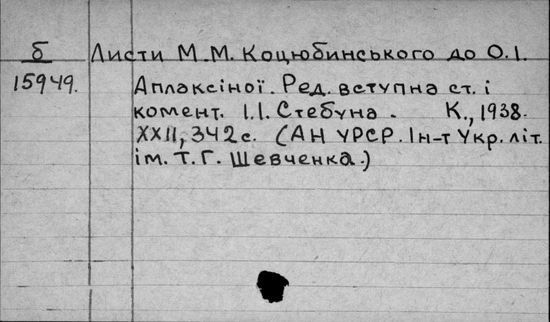 б Листи М.М. Коцюбинського до О.І.
15949. Аплаксіної. Ред. вступна ст. і
комент. І.І. Стебуна. К., 1938.
XXII, 342 с. (АН УРСР. Ін-т Укр. літ.
ім. Т. Г. Шевченка.)